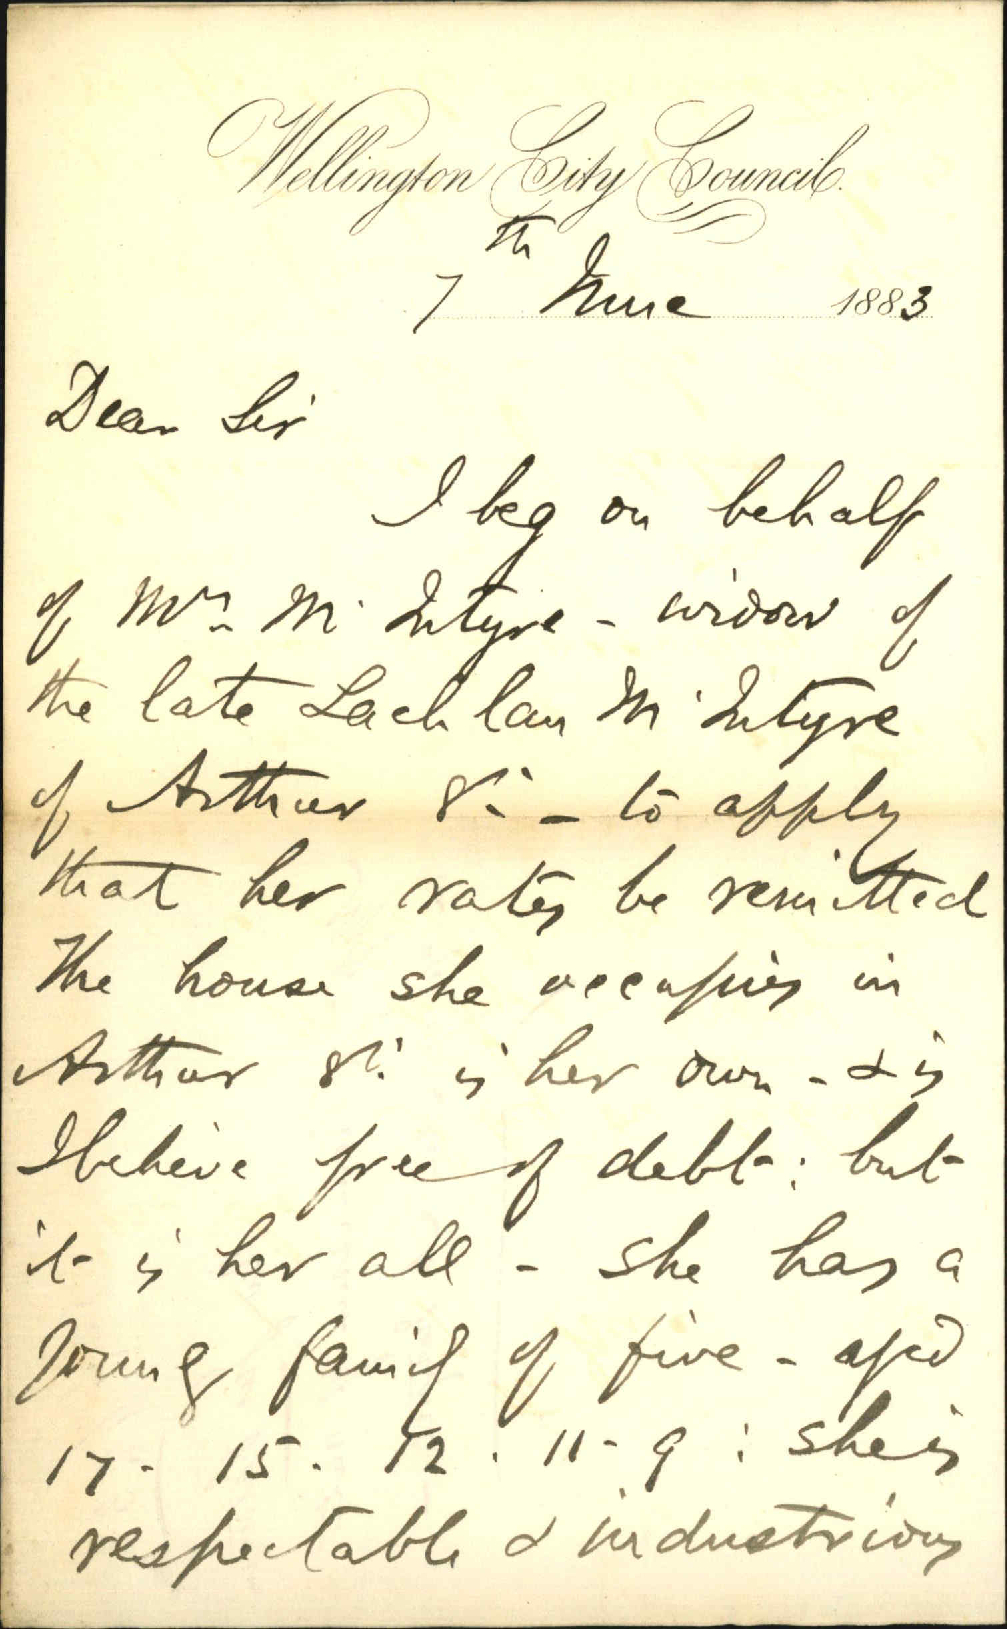 Wellington City Council.
7th June 1883
Dear Sir
I beg on behalf
of Mrs. Mc Intyre - widow of
the late Lachlan Mc Intyre
of Arthur St. - to apply
that her rates be remitted
The house she occupies in
Arthur St. is her own - & is
I believe free of debt : but
it is her all - She has a
young family of five - aged
17 - 15 . 12 . 11 - 9 : she is
respectable & industrious